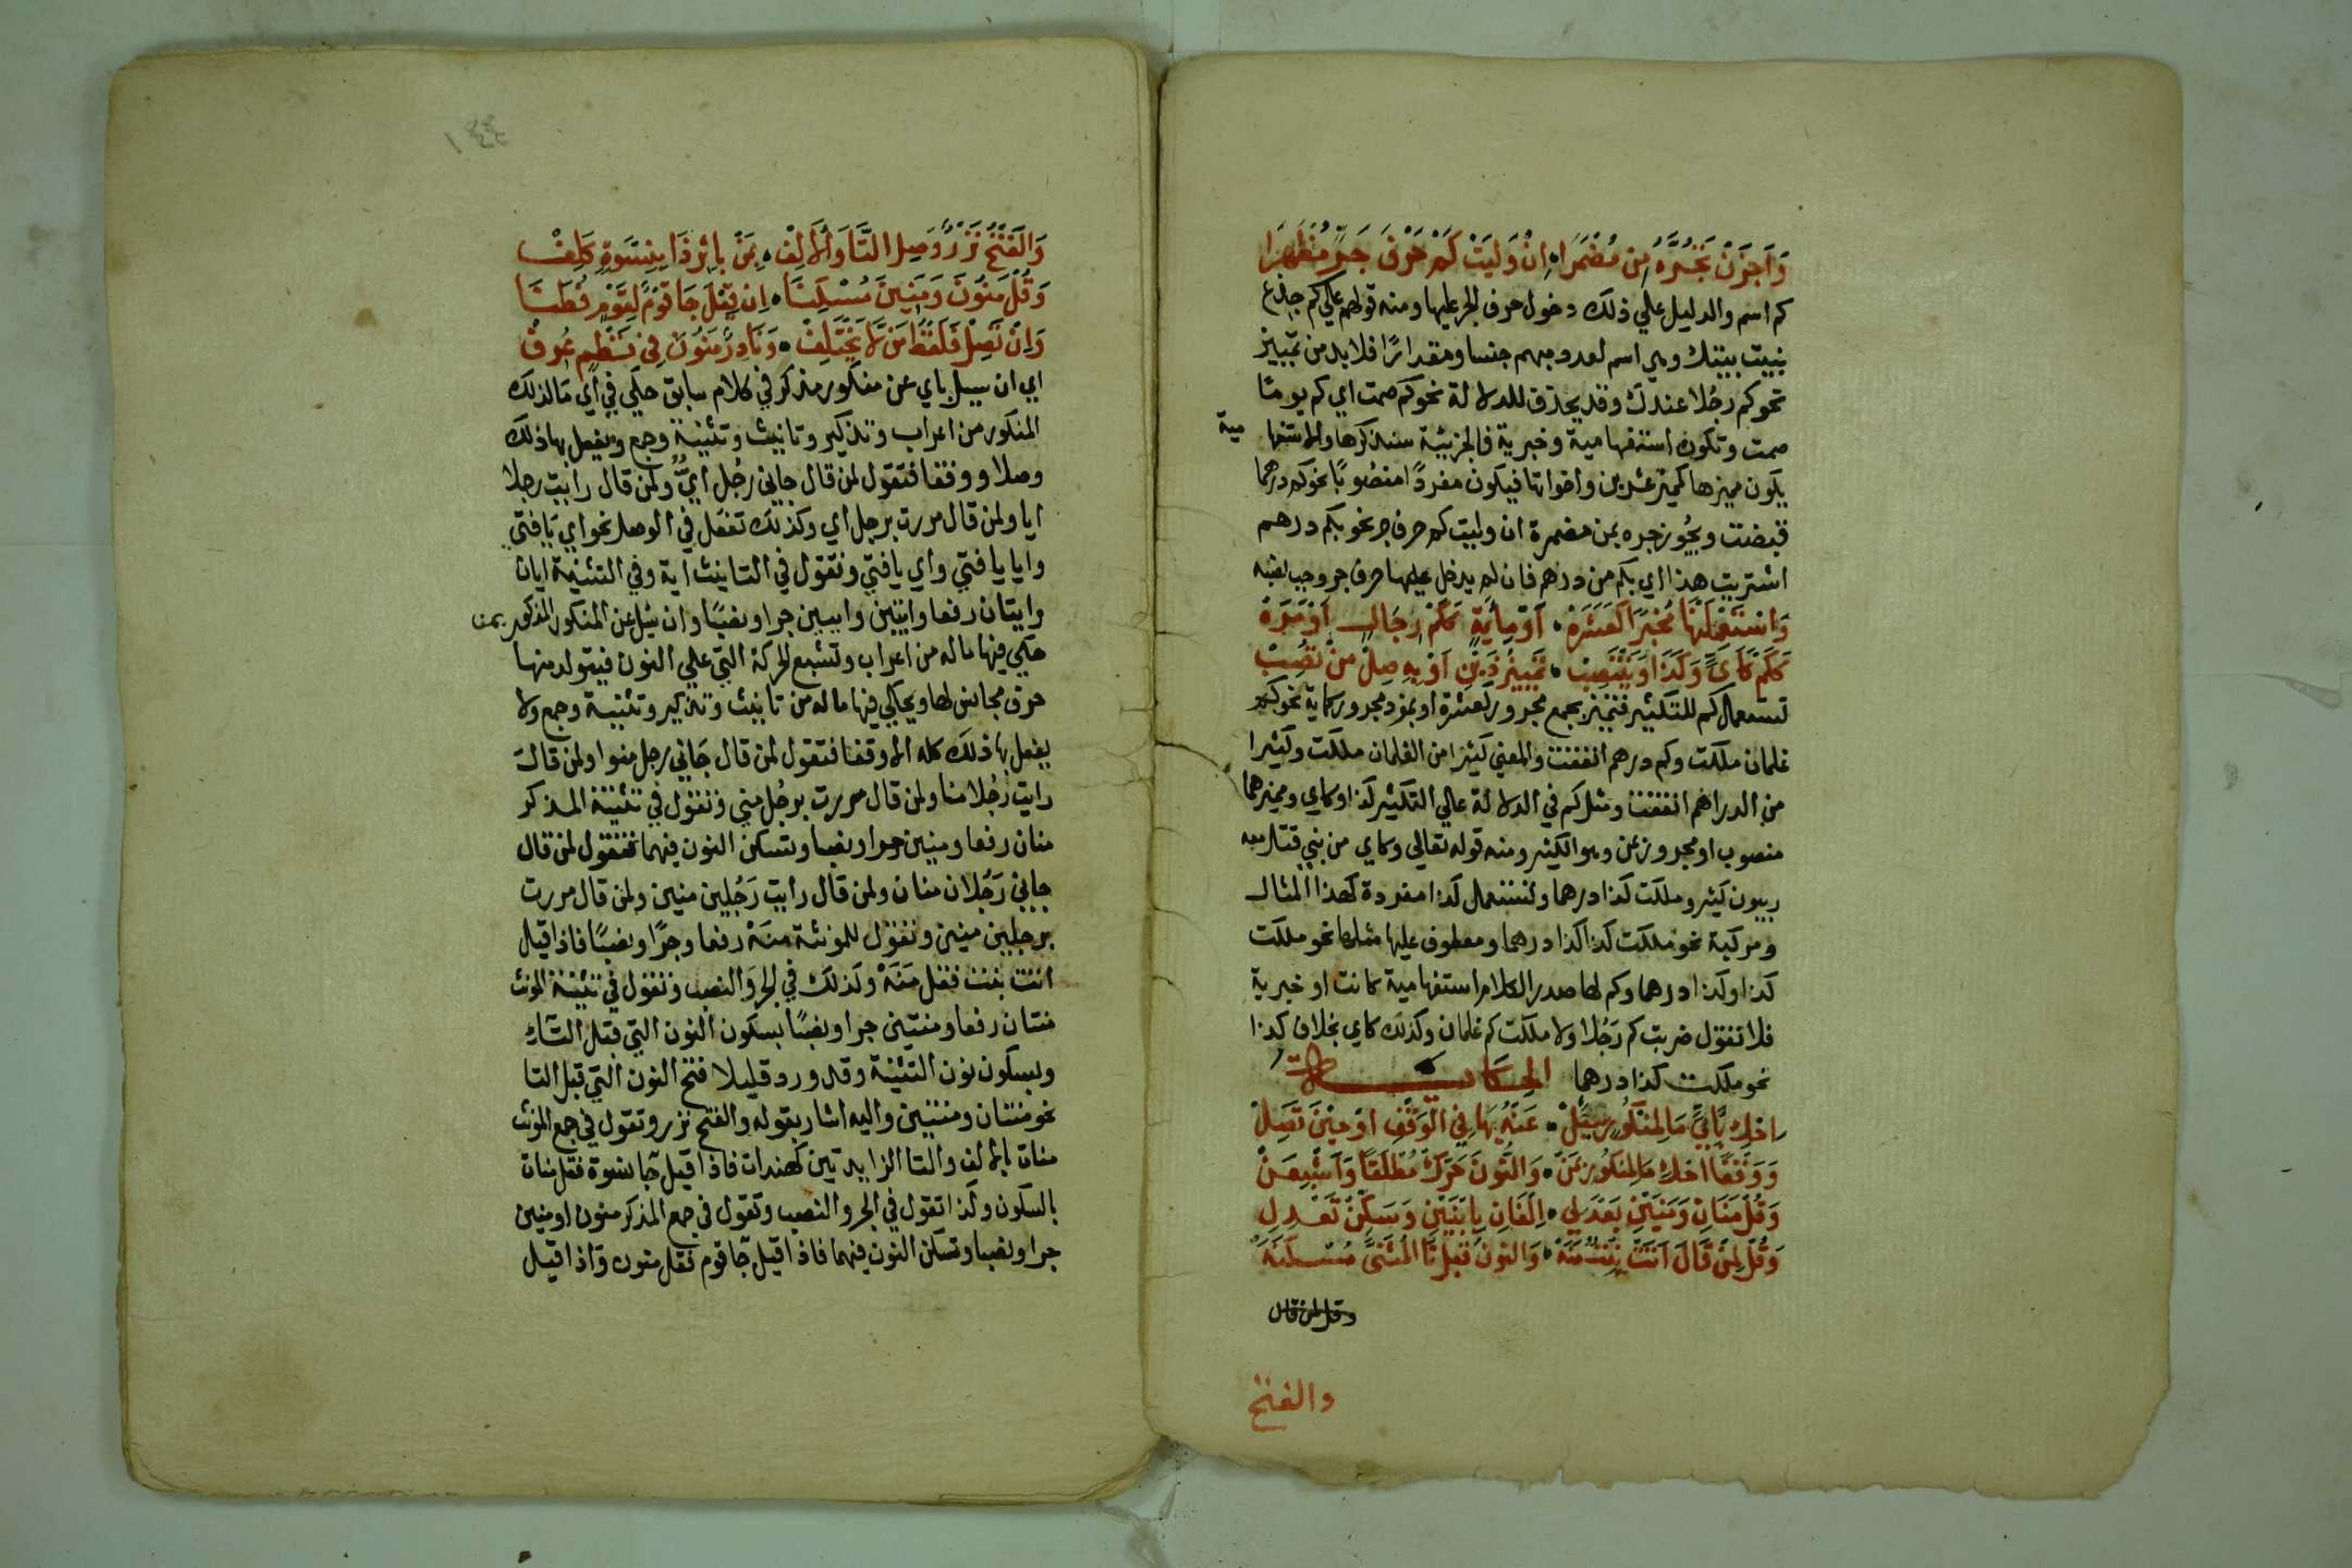 وَأَجِزْنَ تَجُرَّهُ مِن مُضْمَرًا ۰ اِنْ وَلِيَتْ كَمْ حَرْفَ جَرٍّ مُظْهَرَا
كم اسم والدليل علي ذلك دخول حرف الجر عليها ومنه قولهم علي كم جذع
بنيت بيتك وهي اسم لعدد مبهم جنسا ومقدارًا فلا بد من تمييز
نحو كم رجُلا عندك وقد يحذف للدلالة نحو كم صمت اي كم يومًا
صمت وتكون استفهامية وخبرية فالخبرية سنذكرها والاستفها مية
يكون مميزها كمميز عشرين واخواتها فيكون مفردًا منصُوبًا نحو كم درهما
قبضت ويجُوز جره بمن مضمرة ان وليت كم حرف جر نحو بكم درهم
اشتريت هذا اي بكم من درهم فان لم يدخل عليها حرف جر وجب نصبه
وَاسْتَعْمِلَنْهَا مُخْبِرًا كَعَشَرَهْ ۰ اَوْ مِائَةٍ كَكَمْ رِجَالٍ اَوْ مَرَهْ
كَكَمْ كَأَيٍّ وَكَذَا وَيَنْتَصِبْ ۰ تَمْيِيزُ ذَيْنِ اَوْ بِهِ صِلْ مِنْ تُصِبْ
تستعمل كم للتكثير فتميز بجمع مجرور كعشرة او بمفرد مجرور كماية نحو كم
غلمان ملكت وكم درهم انفقت والمعني كثيرا من الغلمان ملكت وكثيرا
من الدراهم انفقت ومثل كم في الدلالة علي التكثير كذا وكاي ومميزهما
منصوب او مجرور بمن وهو الكثير ومنه قوله تعالي وكاي من نبي قتل معه
ربيون كثير وملكت كذا درهما وتستعمل كذا مفردة كهذا المثال
ومركبة نحو ملكت كذا كذا درهما ومعطوف عليها مثلها نحو ملكت
كذا وكذا درهما وكم لها صدر الكلام استفهامية كانت او خبرية
فلا تقول ضربت كم رَجُلا ولا ملكت كم غلمان وكذلك كاي بخلاف كذا
نحو ملكت كذا درهما الحكاية
اِحْكِ بِأَيٍّ مَا لِمَنْكُورٍ سُئِلْ ۰ عَنْهُ بِهَا فِي الْوَقْفِ اَوْ حِيْنَ تَصِلْ
وَوَقْفًا احْكِ مَا لِمَنْكُورٍ بِمَنْ ۰ وَالنُّونَ حَرِّكْ مُطْلَقًا وَأَشْبِعَنْ
وَقُلْ مَنَانِ وَمَنَيْنِ بَعْدَ لِي ۰ اِلْفَانِ بِابْنَيْنِ وَسَكِّنْ تَعْدِلِ
وَقُلْ لِمَنْ قَالَ اَتَتْ بِنْتٌ مَنَهْ ۰ وَالنونُ قَبْلَ تَا الْمُثَنَّى مُسْكَنَهْ
وقل لمن قال
والفتح
١٤٤
وَالْفَتْحُ نَزْرٌ وَصِلِ التَّا وَالْأَلِفْ ۰ بِمَنْ بِاِثْرِ ذَا بِنِسْوَةٍ كَلِفْ
وَقُلْ مَنُونَ وَمَنِينَ مُسْكِنَا ۰ اِن قِيلَ جَا قَوْمٌ لِقَوْمٍ فُطَنَا
وَاِنْ تَصِلْ فَلَفْظُ مَنْ لَا يَخْتَلِفْ ۰ وَنَادِرٌ مَنُونَ فِي نَظْمٍ عُرِفْ
اي ان سيل باي عن منكور مذكور في كلام سابق حكي في أي مَا لذلك
المنكور من اعراب وتذكير وتانيث وتثنية وجمع ويفعل بها ذلك
وصلا ووقفا فتقول لمن قال جاني رجُل ايٌّ ولمن قال رايت رجلا
ايا ولمن قال مررت برجل اي وكذلك تفعَل في الوصل نحو اي يَا فتي
وايا يا فتي واي يا فتي وتقول في التانيث اية وفي التثنية ايان
وايتان رفعا وايين وايتين جرا ونصبًا وان سُئل عن المنكور المذكور بمن
حكي فيها ما له من اعراب وتشبع الحركة التي علي النون فيتولد منها
حرف مجانس لها ويحكي فيها ما له من تانيث وتذكير وتثنية وجمع ولا
يفعل بها ذلك كله الا وقفا فتقول لمن قال جَاني رجل منوا ولمن قال
رايت رَجُلا منا ولمن قال مررت برجُل مني وتقول في تثنية المذكر
منان رفعا ومنين جرا ونصبا وتسكن النون فيهما فتقول لمن قال
جاني رَجُلان منان ولمن قال رايت رَجُلين منين ولمن قال مررت
برجلين منين وتقول للمونثة منَهْ رفعا وجرًا ونصبًا فاذا قيل
اتت بنت فقل مَنَهْ وكذلك في الجر وَالنصب وتقول في تثنية المونث
منتان رفعا ومنتين جرا ونصبًا بسكون النون التي قبل التاء
وبسكون نون التثنية وقد ورد قليلا فتح النون التي قبل التا
نحو منتان ومنتين واليه اشار بقوله والفتح نزر وتقول في جمع المونث
منات بالالف والتا الزايدتين كهندات فاذا قيل جَا نسوة فقل منات
بالسكون وكذا تقول في الجر والنصب وتقول في جمع المذكر منون او منين
جرا ونصبا وتسكن النون فيهما فاذا قيل جَا قوم فقل منون وَاذا قيل